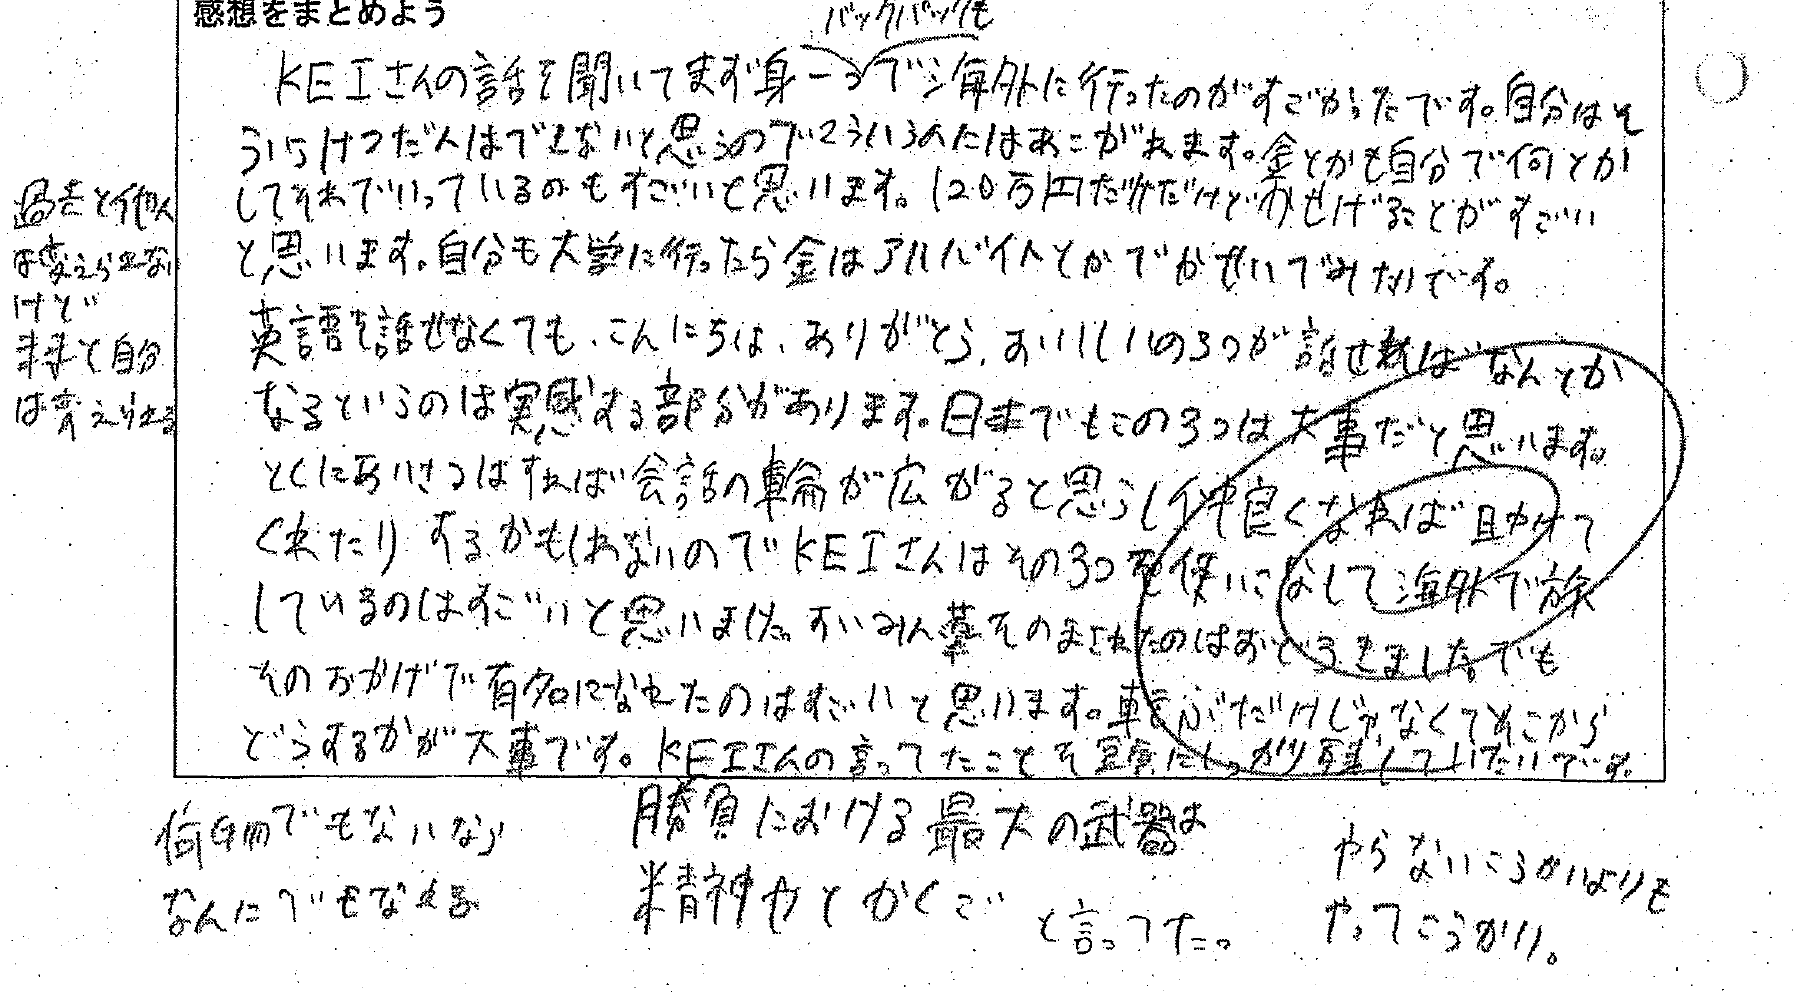 感想をまとめよう
バックパックも
KEIさんの話を聞いてまず身一つで海外に行ったのがすごかったです。自分はそ
ういうけつだんはできないと思うのでこういうのにはあこがれます。金とかも自分で何とか
してそれでいっているのもすごいと思います。120万円だけだけどかせげることがすごい
と思います。自分も大学に行ったら金はアルバイトとかでかせいでみたいです。
英語を話せなくても、こんにちは、ありがとう、おいしいの3つが話せればなんとか
なるというのは実感する部分があります。日本でもこの3つは大事だと思います。
とくにあいさつはすれば会話の輪が広がると思うし仲良くなれば助けて
くれたりするかもしれないのでKEIさんはその3つを使いこなして海外で旅
しているのはすごいと思いました。すいみん薬をのまされたのはおどろきましたでも
そのおかげで有名になれたのはすごいと思います。転ぶだけじゃなくてそこから
どうするかが大事です。KEIさんの言ってたことを頭にしっかり写していたいです。
過去と他人
は変えられない
けど
未来と自分
は変えれる
何物でもないなら
なんにでもなれる
勝負における最大の武器は
精神力とかくご
と言ってた。
やらないこうかいよりも
やってこうかい。